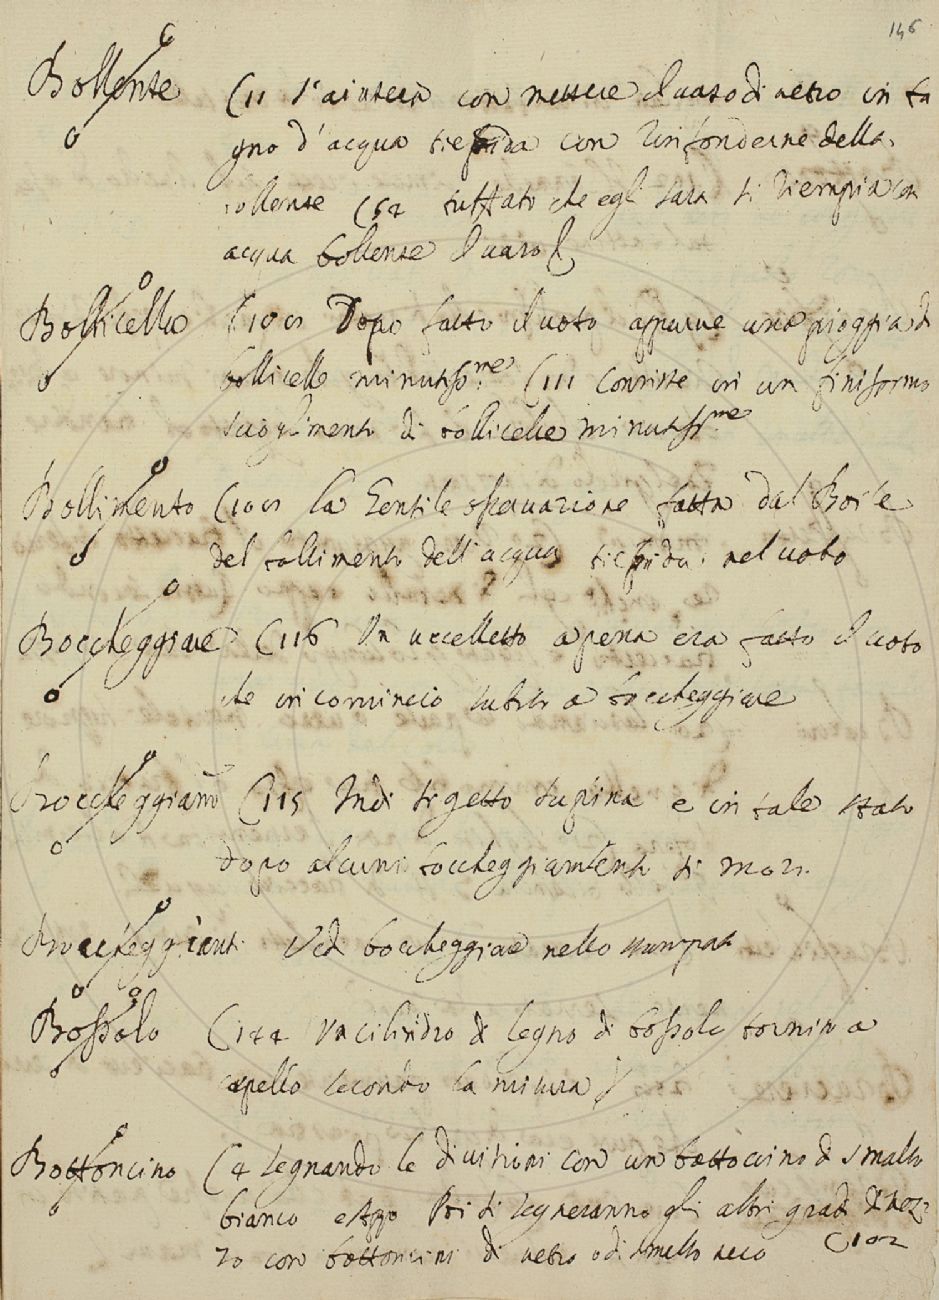 146
Bollente C 11 s'aiuterà con mettere il vaso di vetro in ba
gno d'acqua tiepida con rinfonderne della
bollente C 54 tuffato che egli sarà si riempia con
acqua bollente il vaso
Bollicelle C 100 Dopo fatto il voto apparve una pioggia di
bollicelle minutiss.me C 111 convisse in un finissimo
scioglimento di bollicelle minutiss.me
Bollimento C 100 la Gentile osservazione fatta dal Boile
del bollimento dell'acqua tiepida nel voto
Boccheggiare C 116 Un uccelletto apena era fatto il voto
che incominciò subito a boccheggiare
Boccheggiam.to C 115 Indi si gettò supina e in tale stato
dopo alcuni boccheggiamenti si morì.
Boccheggianti Ved boccheggiare nello stampato
Bossolo C 144 Un cilindro di legno di bossolo tornito a
capello secondo la misura
Bottoncino C 4 segnando le divisioni con un bottoncino di smalto
bianco e Appo Poi si segneranno gli altri gradi di mez-
zo con bottoncini di vetro o di smalto nero C 102